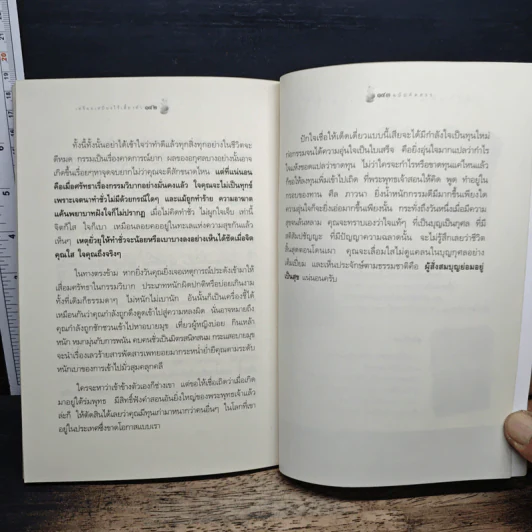 ๑๔๒
ทั้งนี้ทั้งนั้นอย่าได้เข้าใจว่าทำดีแล้วทุกสิ่งทุกอย่างในชีวิตจะ
ดีหมด กรรมเป็นเรื่องคาดการณ์ยาก ผลของอกุศลบางอย่างนั้นอาจ
เกิดขึ้นเรื่อยๆ จนคุณจะตีสักขนาดไหน แต่ที่แน่นอน
คือเมื่อศรัทธาเรื่องกรรมวิบากอย่างมั่นคงแล้ว ใจคุณจะไม่เป็นทุกข์
เพราะเจตนาทำชั่วไม่มีด้วยกรณีใดๆ และแม้ถูกทำร้าย ความอาฆาต
แค้นพยาบาทฝังใจก็ไม่ปรากฏ เมื่อไม่คิดทำชั่ว ไม่ผูกใจเจ็บ เท่านี้
จิตก็ใส ใจก็เบา เหมือนลอยคออยู่ในทะเลแห่งความสุขกันแล้ว
เห็นๆ เหตุยั่วยุให้ทำชั่วจะน้อยหรือเบาบางลงอย่างเห็นได้ชัดเมื่อจิต
คุณใส ใจคุณเย็นจริงๆ
ในทางตรงข้าม หากยิ่งวันคุณยิ่งเจอเหตุการณ์ประดังเข้ามาให้
เสื่อมศรัทธาในกรรมวิบาก ประเภทหนักผิดปกติหรือบ่อยเกินงาม
ทั้งที่เดิมก็ธรรมดาๆ ไม่หนักไม่เบานัก อันนั้นก็เป็นเครื่องชี้ได้
เหมือนกันว่าคุณกำลังถูกดึงดูดเข้าไปสู่ความหลงผิด นั่นอาจหมายถึง
คุณกำลังถูกชักชวนเข้าไปหาอบายมุข เที่ยวผู้หญิงบ่อย กินเหล้า
หนัก หมกมุ่นกับการพนัน คบคนชั่วเป็นมิตรสนิทสนม กระแสอบายมุข
จะนำเรื่องเลวร้ายสารพัดสารเพทยอยมากระหน่ำย่ำยีคุณตามระดับ
หนักเบาของการเข้าไปมั่วสุมคลุกคลี
ใครจะหาว่าเข้าข้างตัวเองก็ช่างเขา แต่ขอให้เชื่อเถิดว่าเมื่อเกิด
มาอยู่ใต้ร่มพุทธ มีสิทธิ์ฟังคำสอนอันยิ่งใหญ่ของพระพุทธเจ้าแล้ว
ล่ะก็ ให้ตัดสินได้เลยว่าคุณมีทุนเก่ามาหนากว่าคนอื่นๆ ในโลกที่เขา
อยู่ในประเทศซึ่งขาดโอกาสแบบเรา
๑๔๓
ปักใจเชื่อให้เด็ดเดี่ยวแบบนี้เสียจะได้มีกำลังใจเป็นทุนใหม่
ก่อกรรมจนได้ความอุ่นใจเป็นใบเสร็จ คือยิ่งอุ่นใจมากแปลว่ากำไร
ใจแห้งขอดแปลว่าขาดทุน ไม่ว่าใครจะกำไรหรือขาดทุนแค่ไหนแล้ว
ก็ขอให้ลงทุนเพิ่มเข้าไปเถิด ที่พระพุทธเจ้าสอนให้คิด พูด ทำอยู่ใน
กรอบของทาน ศีล ภาวนา ยิ่งน้ำหนักกรรมดีมีมากขึ้นเพียงใด
ความอุ่นใจก็จะยิ่งเพิ่มมากขึ้นเพียงนั้น กระทั่งถึงวันหนึ่งเมื่อมีความ
สุขจนล้นหลาม คุณจะทราบเองว่าใจแท้ๆ ที่เป็นบุญเป็นกุศล ที่มี
สติสัมปชัญญะ ที่มีปัญญาความฉลาดนั้น จะไม่รู้สึกเลยว่าชีวิต
สิ้นสุดตอนโดนเมา คุณจะเลื่อมใสไม่ดูแคลนในบุญกุศลอย่าง
เต็มเปี่ยม และเห็นประจักษ์ตามธรรมชาติคือ ผู้สั่งสมบุญย่อมอยู่
เป็นสุข แน่นอนครับ